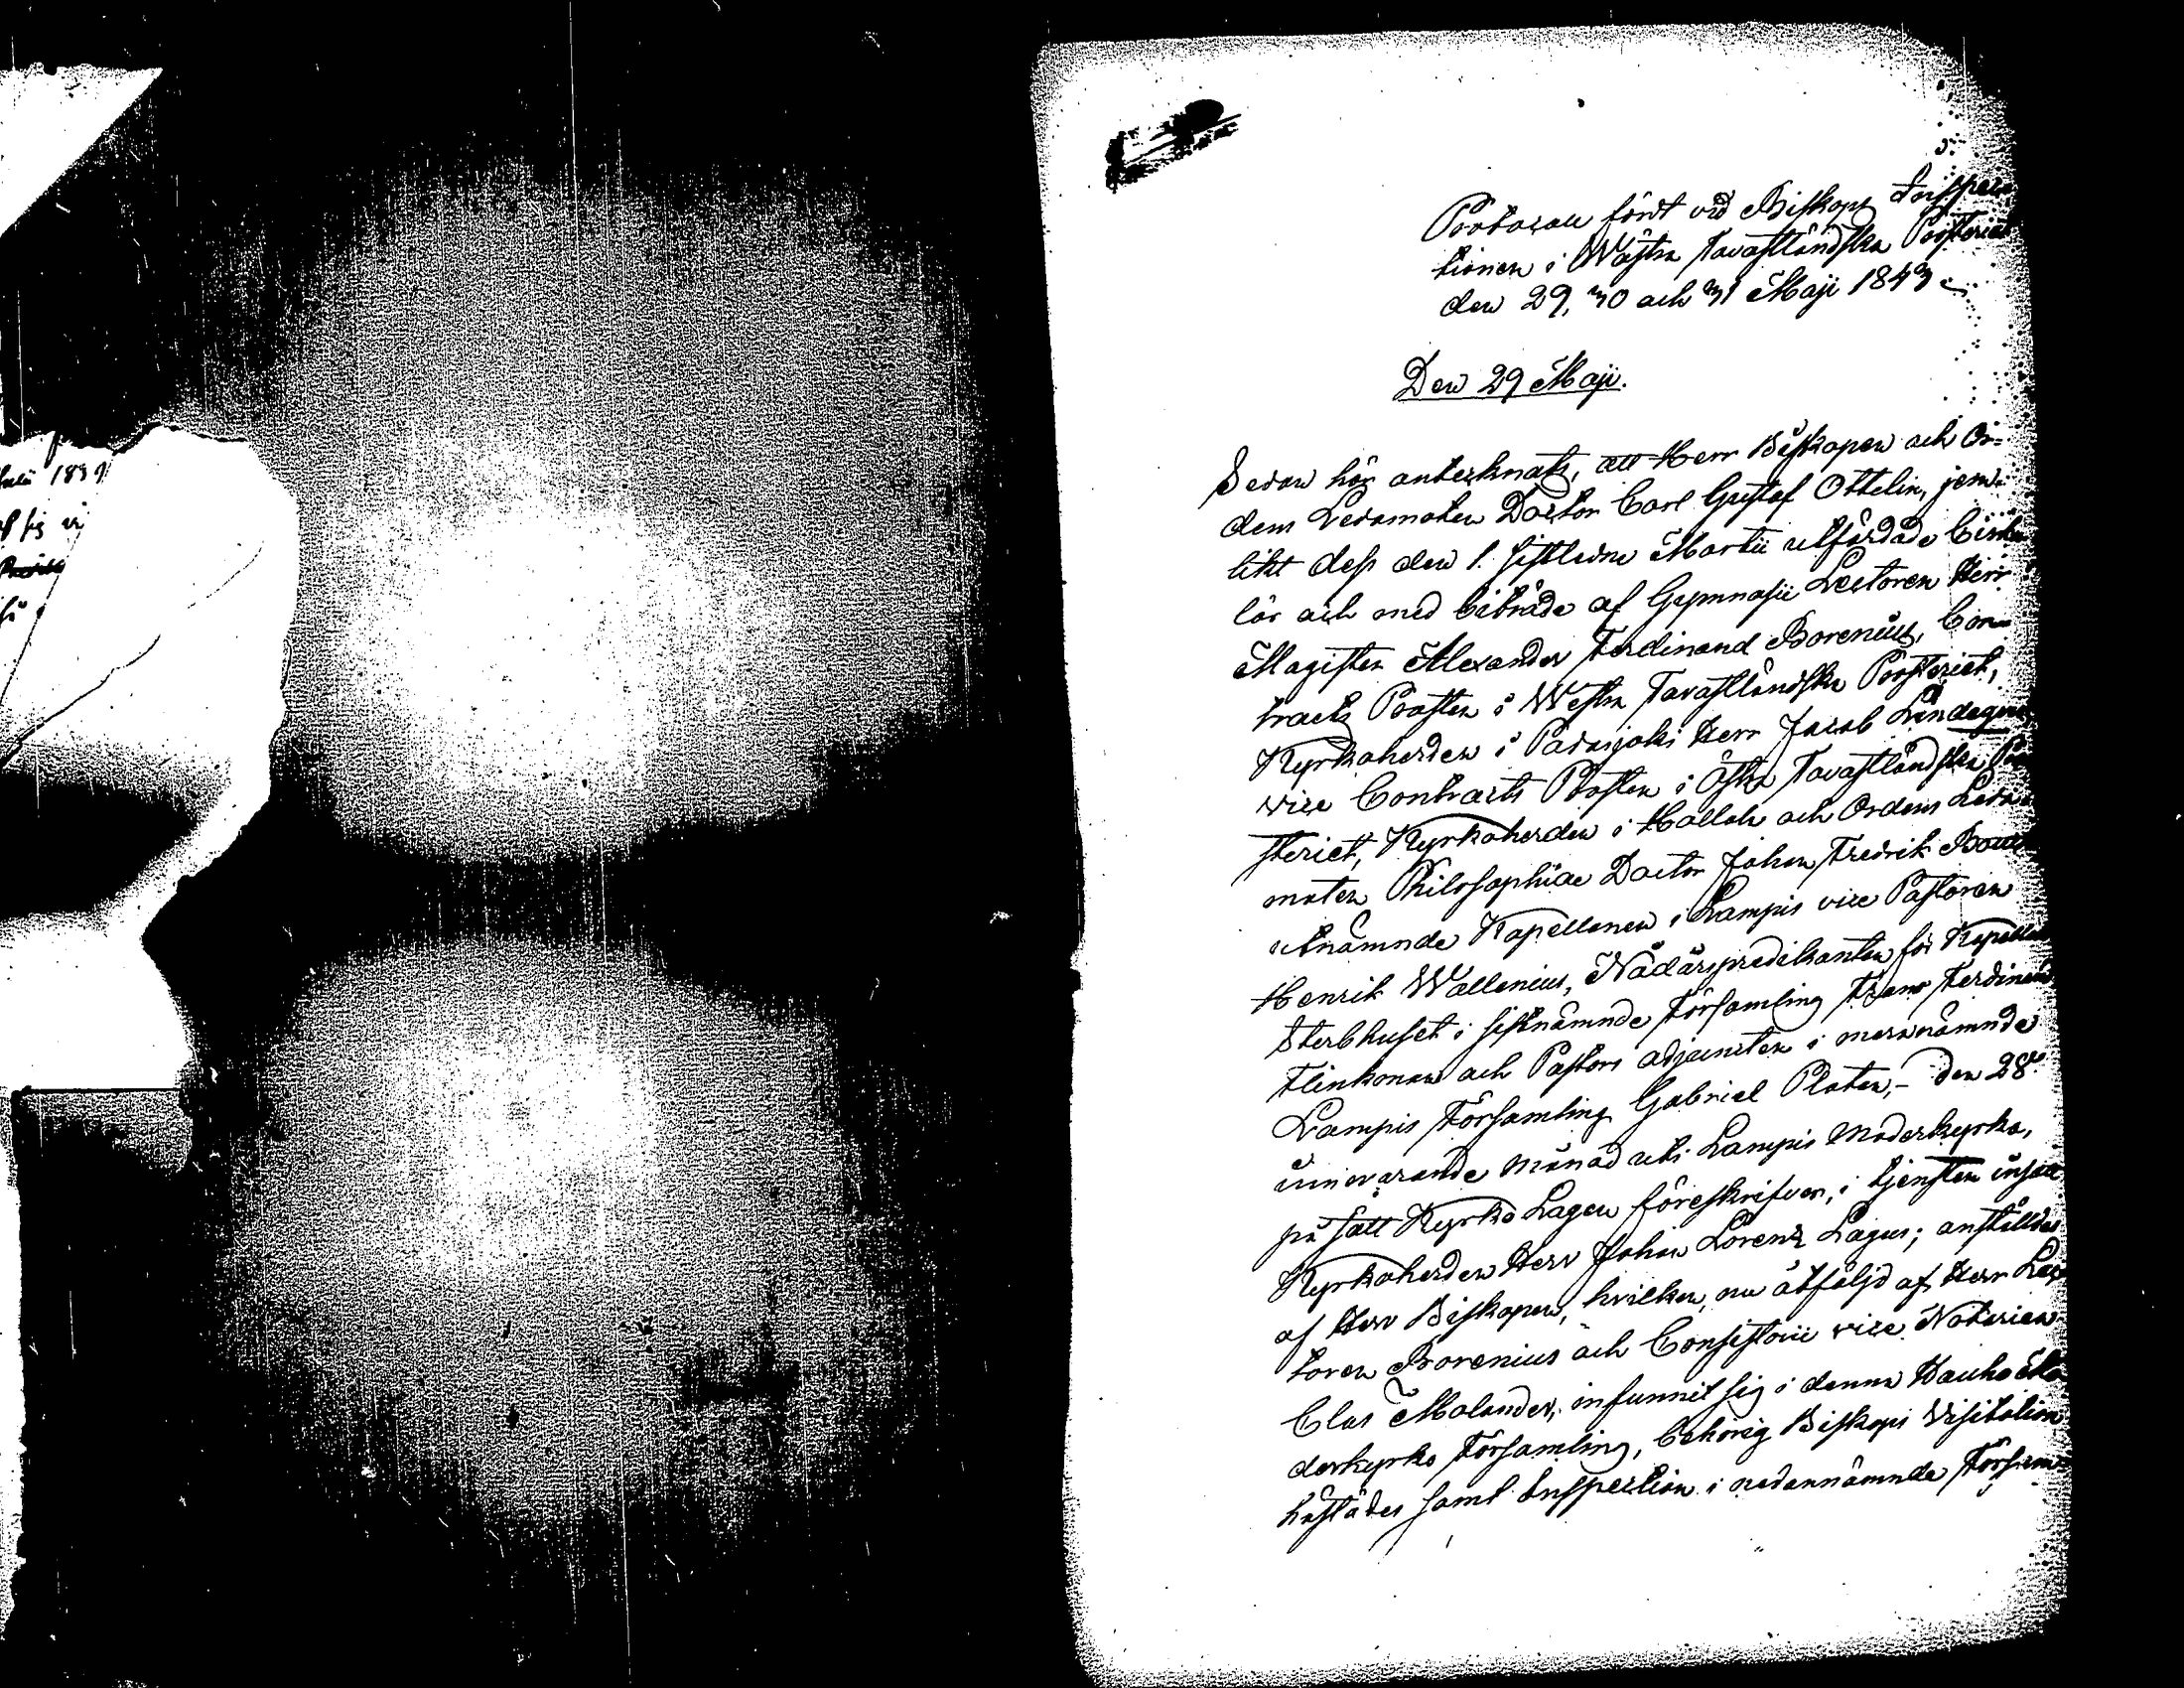 Julii 1839
Protocoll fördt vid Biskops Inspec
tionen i Wästra Tavastländska Prosteriet
den 29, 30 och 31 Maji 1843
Den 29 Maji.
Sedan här antecknats, att Herr Biskopen och Or-
dens Ledamoten Doctor Carl Gustaf Ottelin, jem-
likt dess den 1. sistledne Martii utfärdade Cirku
lär och med biträde af Gymnasii Lectoren Herr
Magister Alexander Ferdinand Borenius, Con-
tracts Prosten i Westra Tavastländska Prosteriet,
Kyrkoherden i Padasjoki Herr Jacob Lindegren
vice Contracts Prosten i Östra Tavastländska Pro
steriet, Kyrkoherden i Hollola och Ordens Leda
moten Philosophiae Doctor Johan Fredrik
utnämnde Kapellanen i Lampis vice Pastoren
Henrik Wallenius, Nådårspredikanten för Kapellans
Sterbhuset i sistnämnde Församling Frans Ferdinand
Flinkman och Pastors adjuncten i mernämnde
Lampis Församling Gabriel Platen,- den 28de
innevarande månad uti Lampis Moderkyrka,
på sätt Kyrko Lagen föreskrifver, i tjensten insatt
Kyrkoherden Herr Johan Lorenz Lagus; anställdes
af Herr Biskopen, hvilken, nu åtföljd af Herr Lec
toren Borenius och Consistorii vice Notarien
Clas Molander, infunnit sig i denna Hauho Mo
derkyrko Församling, behörig Biskops Visitation
härstädes samt Inspection i nedannämnde Försam